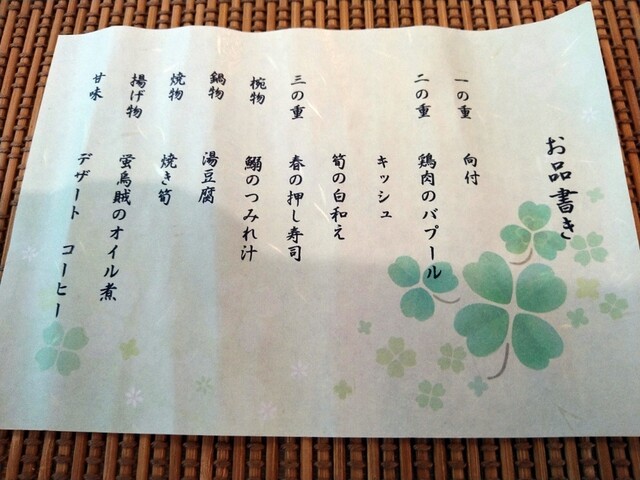 お品書き
一の重 向付
二の重 鶏肉のバプール
キッシュ
筍の白和え
三の重 春の押し寿司
椀物 鰯のつみれ汁
鍋物 湯豆腐
焼物 焼き筍
揚げ物 蛍烏賊のオイル煮
甘味 デザート コーヒー